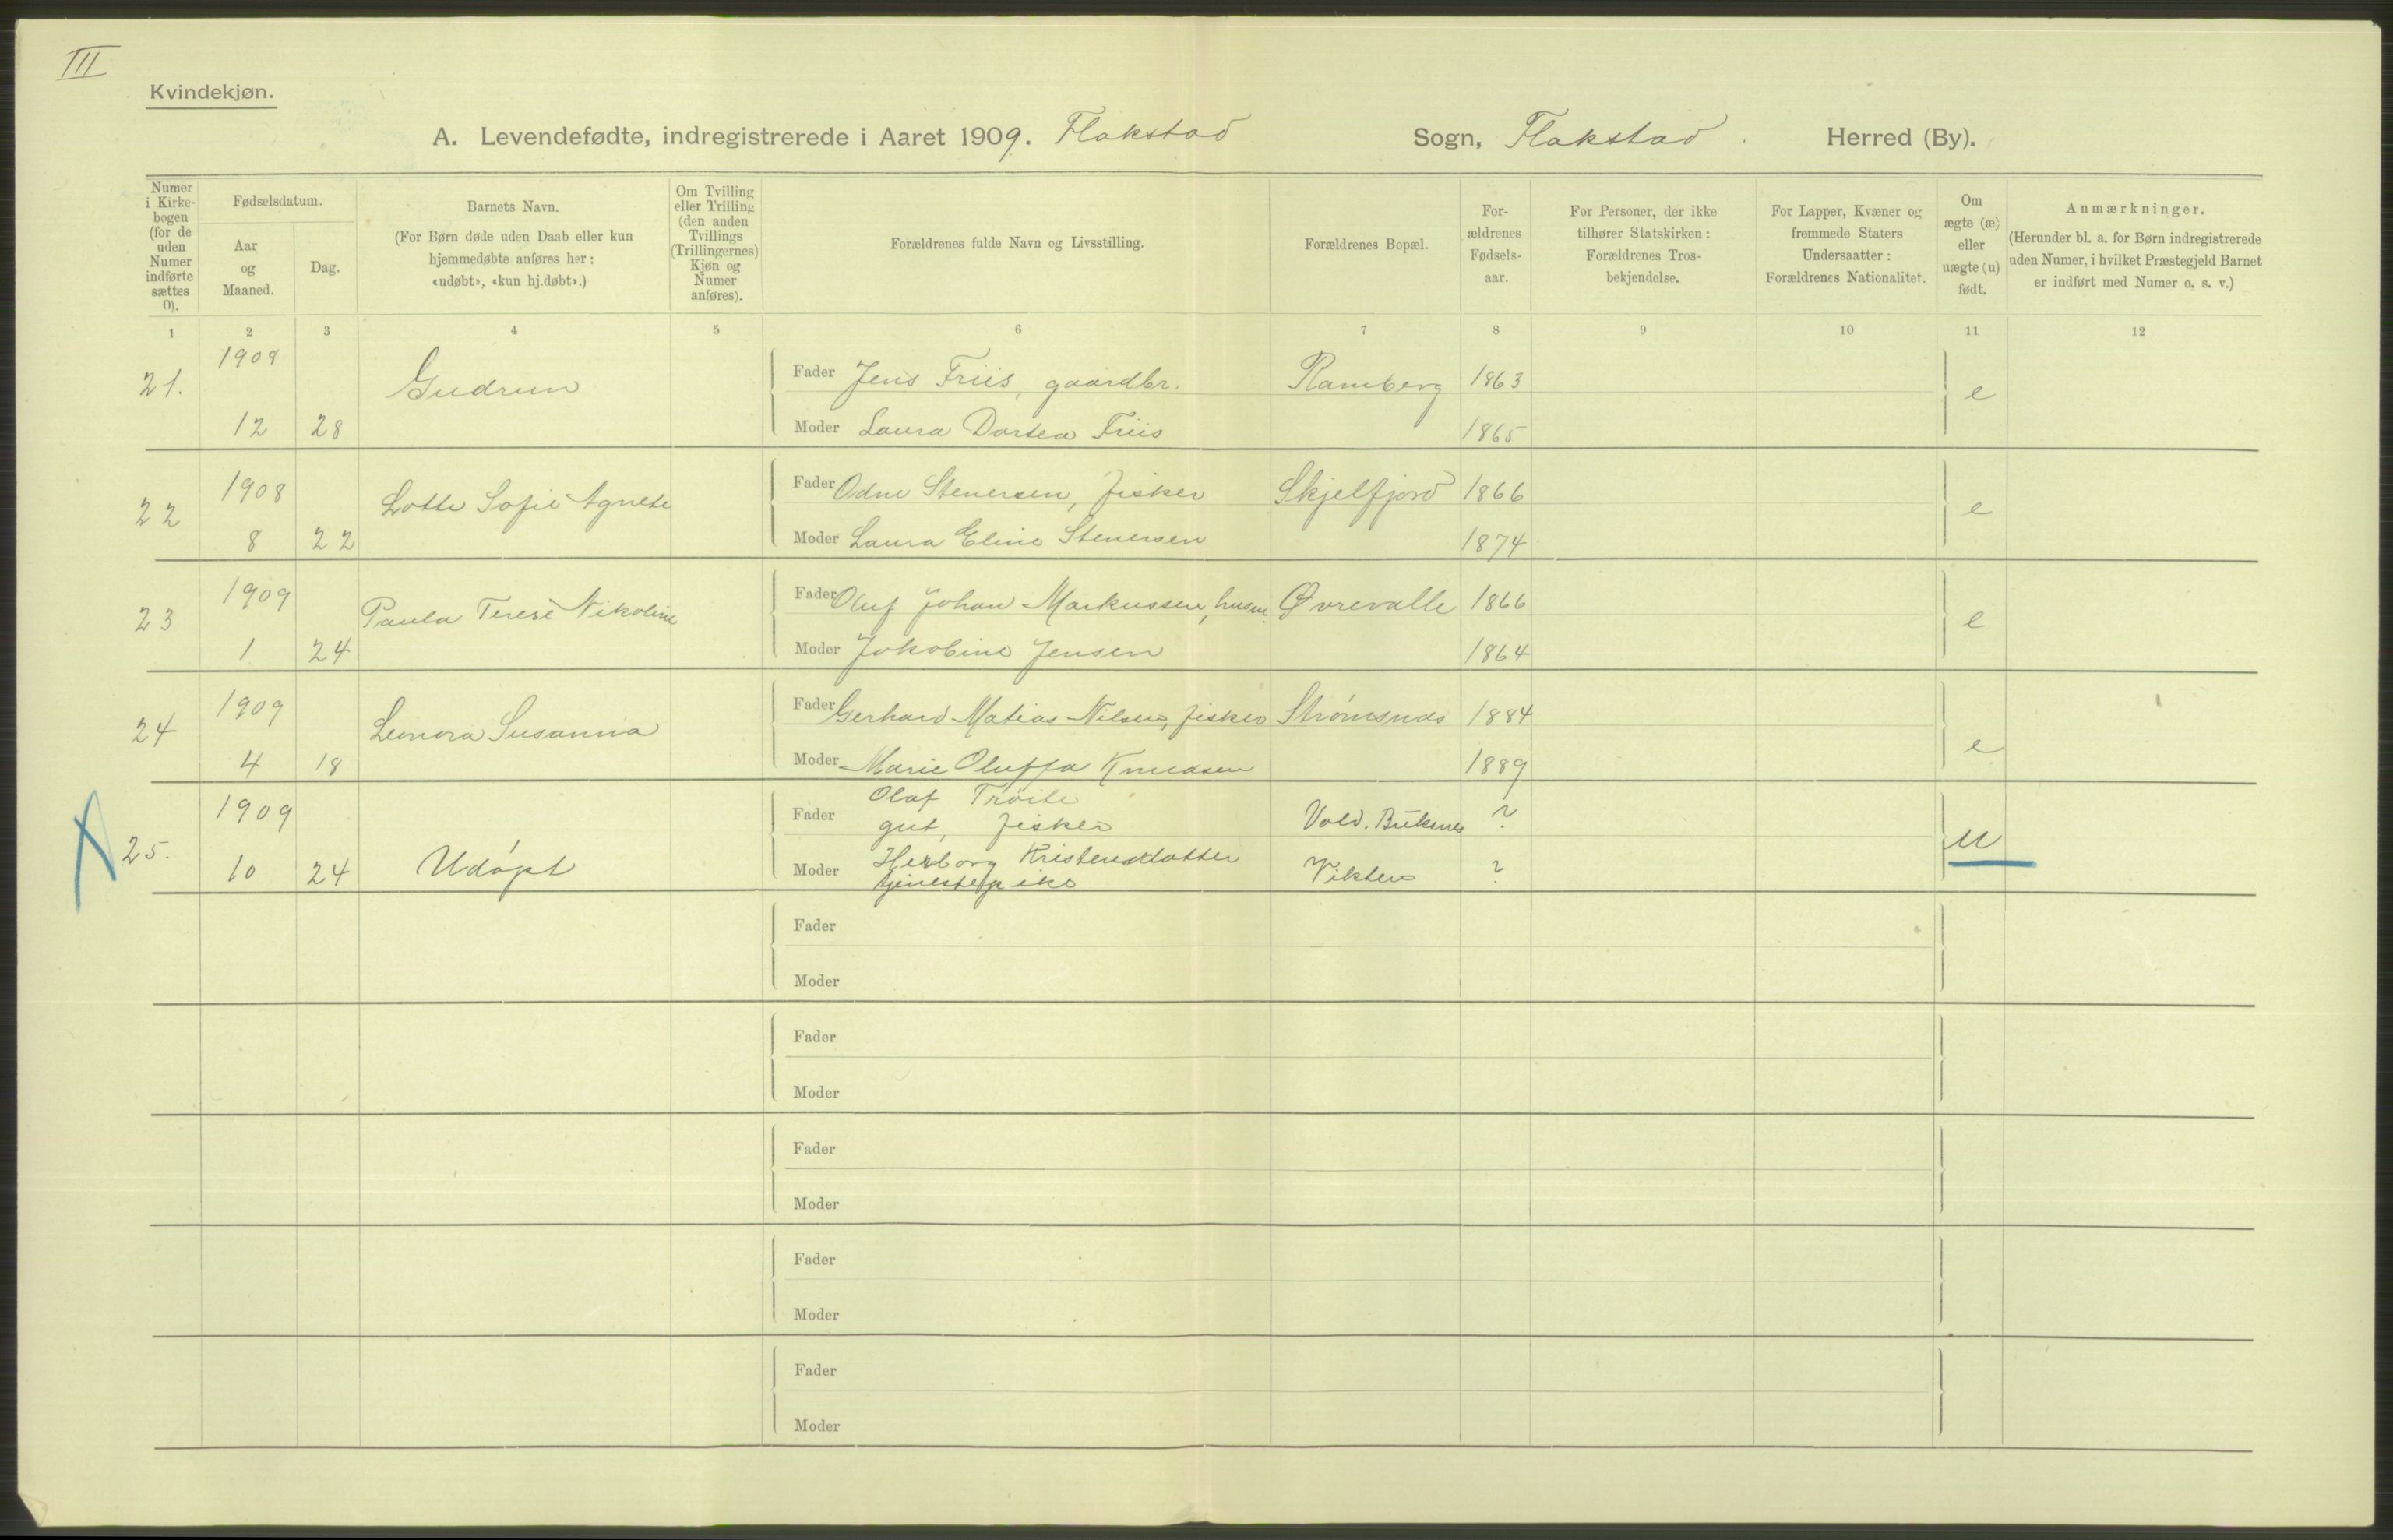 III
Kvindekjøn.
A. Levendefødte, indregistrerede i Aaret 1909. Flakstad Sogn, Flakstad Herred (By).
Numer i Kirkebogen (for de uden Numer indførte sættes 0).
Fødselsdatum.
Aar og Maaned.
Dag.
Barnets Navn.
(For Børn døde uden Daab eller kun hjemmedøbte anføres her: «udøbt», «kun hj.døbt».)
Om Tvilling eller Trilling (den anden Tvillings (Trillingernes) Kjøn og Numer anføres).
Forældrenes fulde Navn og Livsstilling.
Forældrenes Bopæl.
Forældrenes Fødselsaar.
For Personer, der ikke tilhører Statskirken: Forældrenes Trosbekjendelse.
For Lapper, Kvæner og fremmede Staters Undersaatter: Forældrenes Nationalitet.
Om ægte (æ) eller uægte (u) født.
Anmærkninger.
(Herunder bl. a. for Børn indregistrerede uden Numer, i hvilket Præstegjeld Barnet er indført med Numer o. s. v.)
1 2 3 4 5 6 7 8 9 10 11 12
21. 1908 Gudrun Fader Jens Friis, gaardbr. Ramberg 1863 e
12 28 Moder Laura Dortea Friis 1865
22 1908 Lotte Sofie Agnete Fader Odin Stenersen, fisker Skjelfjord 1866 e
8 22 Moder Laura Eline Stenersen 1874
23 1909 Paula Terese Nikoline Fader Oluf Johan Markussen, husm. Øvrevalle 1866 e
1 24 Moder Jakobine Jensen 1864
24 1909 Leonora Susanna Fader Gerhard Matias Nilsen, fisker Strømsnes 1884 e
4 18 Moder Marie Oluffa Knudsen 1889
25. 1909 Udøpt Fader Olaf Tröite
gut, fisker Vold. Buksnes ? u
10 24 Moder Herborg Kristensdatter
tjenestepike Vikten ?
Fader
Moder
Fader
Moder
Fader
Moder
Fader
Moder
Fader
Moder